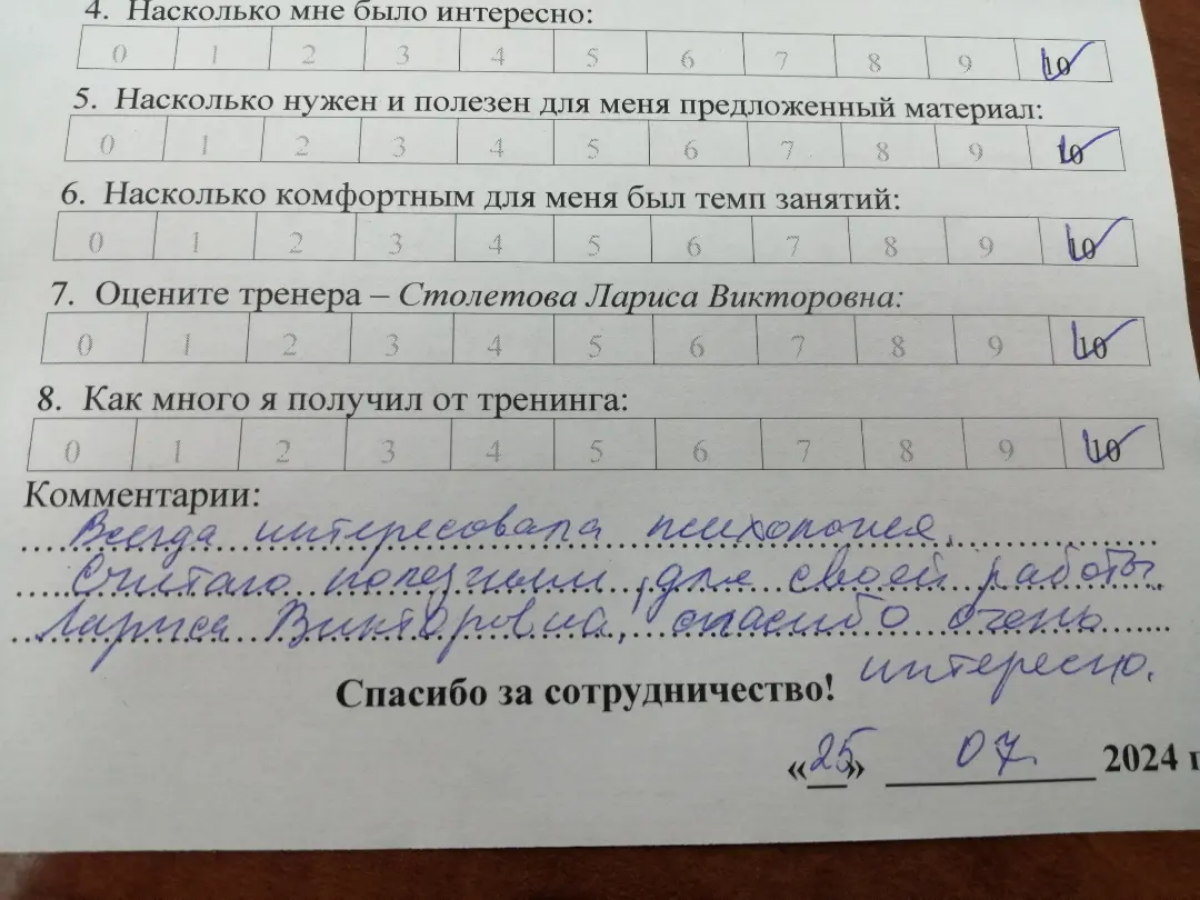 4. Насколько мне было интересно:
0 1 2 3 4 5 6 7 8 9 10
5. Насколько нужен и полезен для меня предложенный материал:
0 1 2 3 4 5 6 7 8 9 10
6. Насколько комфортным для меня был темп занятий:
0 1 2 3 4 5 6 7 8 9 10
7. Оцените тренера – Столетова Лариса Викторовна:
0 1 2 3 4 5 6 7 8 9 10
8. Как много я получил от тренинга:
0 1 2 3 4 5 6 7 8 9 10
Комментарии:
Всегда интересовала психология,
Считаю полезным, для своей работы
Лариса Викторовна, спасибо очень
интересно.
Спасибо за сотрудничество!
«25» 07. 2024 г